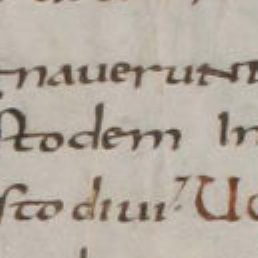 gnauerunt
stodem In
sto diui? Uo